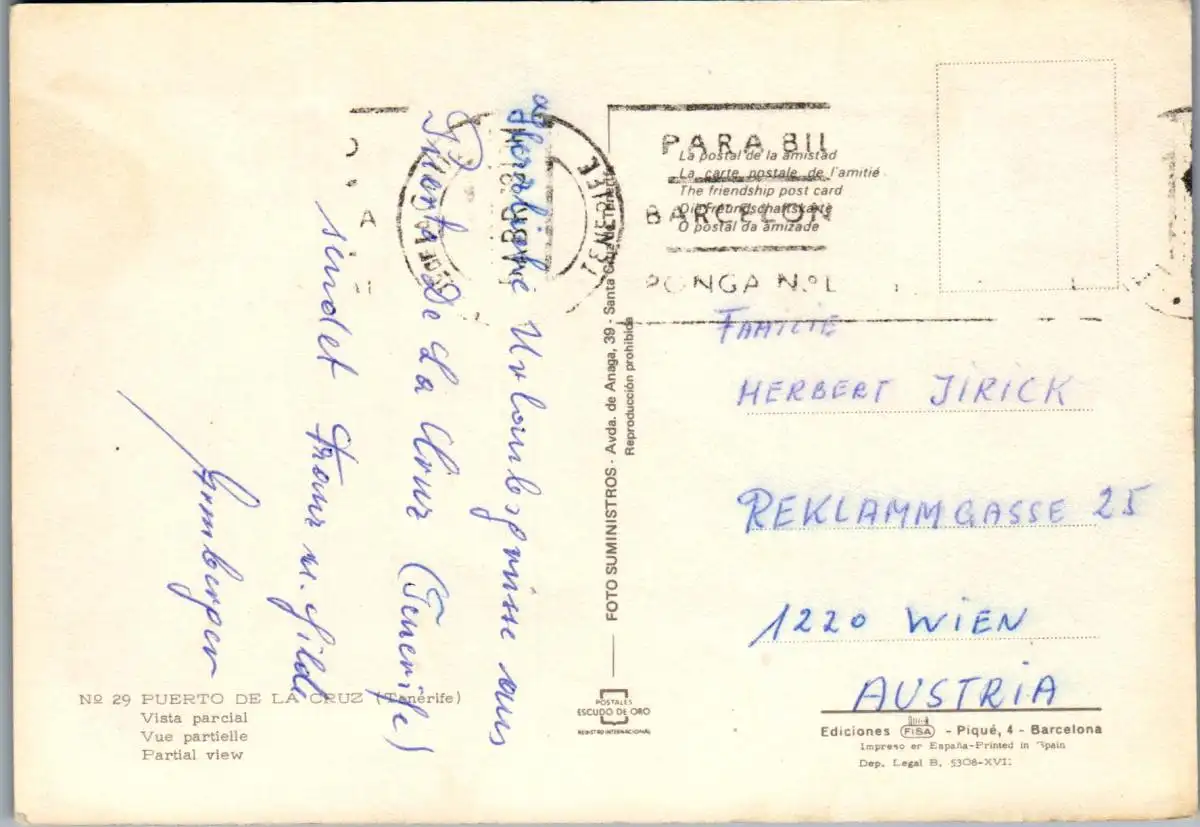 Herzliche Urlaubsgrüsse aus
Puerto De La Cruz (Tenerife)
sendet Franz u. Hilde
PARA
BARCELON
PONGA Nº
TENERIFE
La postal de la amistad
La carte postale de l'amitié
The friendship post card
Die Freundschaftskarte
O postal da amizade
FAMILIE
HERBERT JIRICK
REKLAMMGASSE 25
1220 WIEN
AUSTRIA
FOTO SUMINISTROS - Avda. de Anaga, 39 - Santa Cruz de Tenerife
Reproducción prohibida
Nº 29 PUERTO DE LA CRUZ (Tenerife)
Vista parcial
Vue partielle
Partial view
POSTALES
ESCUDO DE ORO
REGISTRO INTERNACIONAL
Ediciones FISA - Piqué, 4 - Barcelona
Impreso en España-Printed in Spain
Dep. Legal B. 5308-XVII